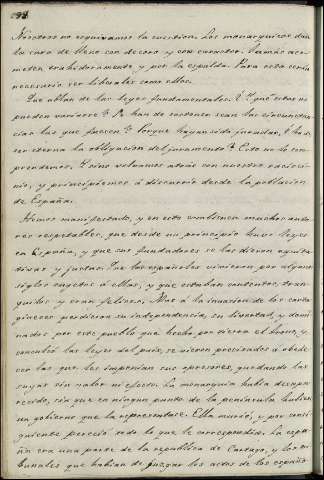 Nosotros no esquivamos la cuestion. Los monarquicos dan
la cara de lleno con decoro y con caracter. Jamás aco-
meten traidoramente y por la espalda. Para esto sería
necesario ser liberales como ellos.
Que ablan de las leyes fundamentales. ¿Y qué estas no
pueden variarse? ¿Se han de sostener sean las circunstan-
cias las que fuesen? ¿Porque hayan sido juradas, ha de
ser eterna la obligacion del juramento? Esto no lo com-
prendemos. Y sino volvamos atrás con nuestro raciocí-
nio, y principiemos á discurrir desde la poblacion
de España.
Hemos manifestado, y en esto convienen muchos auto-
res respetables, que desde un principio hubo leyes
en España, y que sus fundadores se las dieron equita-
tivas y justas. Que los españoles vivieron por algunos
siglos sujetos á ellas, y que estaban contentos, tran-
quilos y eran felices. Mas á la invasion de los carta-
gineses perdieron su independencia, su libertad, y domi-
nados por este pueblo que hechó por tierra el trono, y
conculcó las leyes del pais, se vieron precisados á obede-
cer las que les imponian sus opresores, quedando las
suyas sin valor ni efecto. La monarquía habia desapa-
recido, sin que en ningun punto de la península hubiese
un gobierno que la representase. Ella murió, y por consi-
guiente pereció todo lo que le correspondia. La espa-
ña era una parte de la republica de Cartago, y los tri-
bunales que habian de juzgar los actos de los españo-